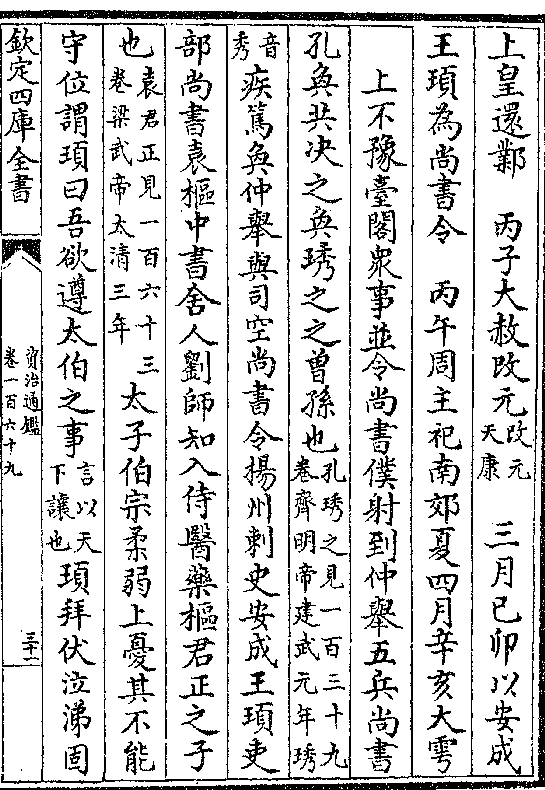 上皇還鄴　丙子大赦改元改元天康　三月己卯以安成
王頊為尚書令　丙午周主祀南郊夏四月辛亥大雩
上不豫臺閣衆事並令尚書僕射到仲舉五兵尚書
孔奐共决之奐琇之之曾孫也孔琇之見一百三十九卷齊明帝建武元年琇
音秀疾篤奐仲舉與司空尚書令揚州刺史安成王頊吏
部尚書袁樞中書舍人劉師知入侍醫藥樞君正之子
也袁君正見一百六十三卷梁武帝太清三年太子伯宗柔弱上憂其不能
守位謂頊曰吾欲遵太伯之事言以天下讓也頊拜伏泣涕固
欽定四庫全書
資治通鑑
卷一百六十九
三十二